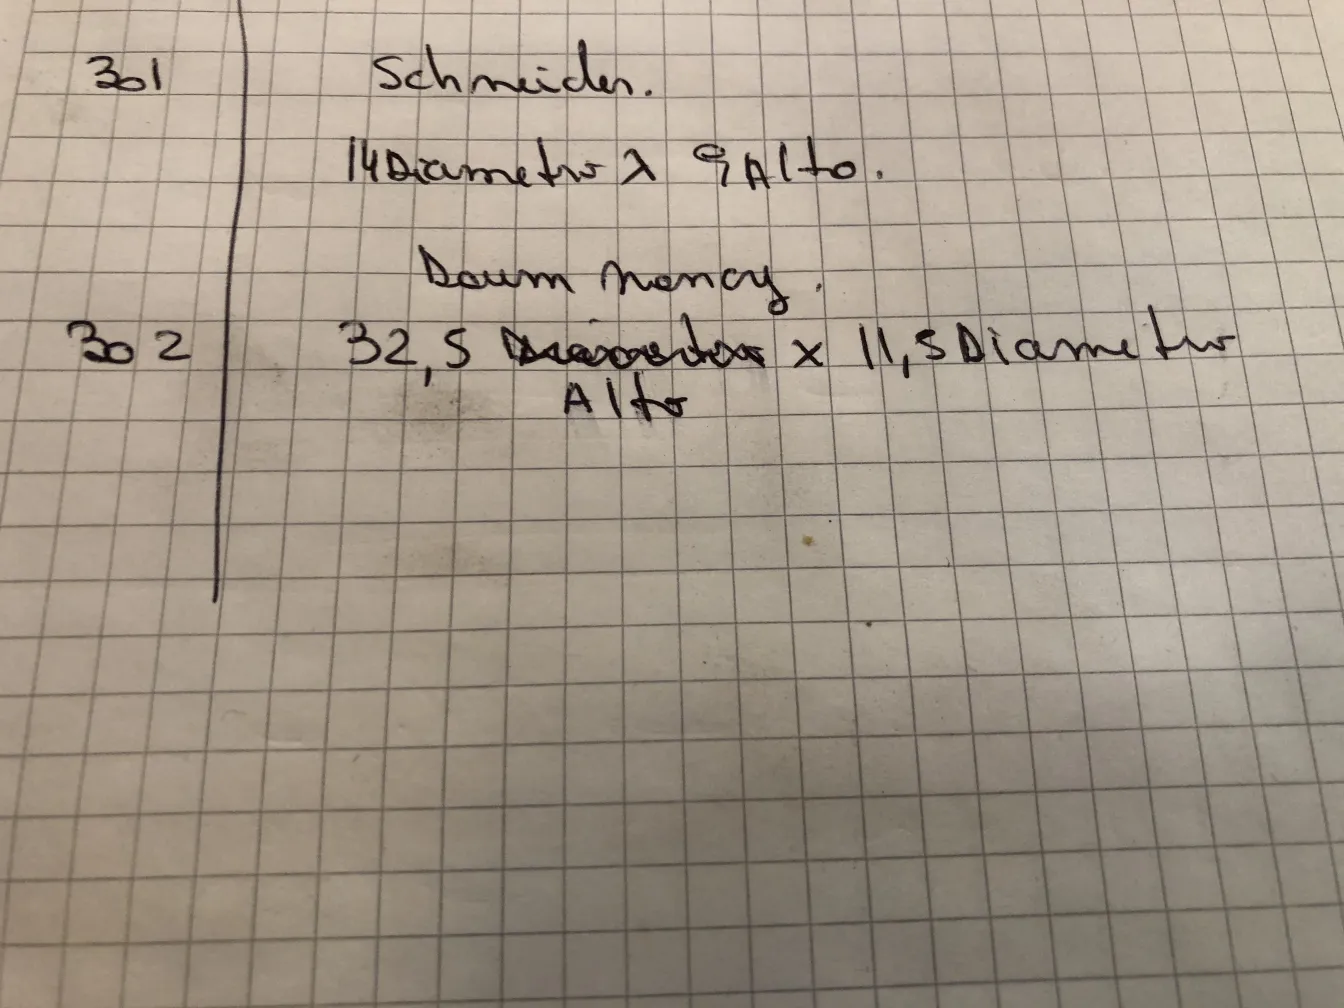 301 Schneider.
14 Diametro x 9 Alto.
Daum Nancy.
302 32,5 x 11,5 Diametro
Alto